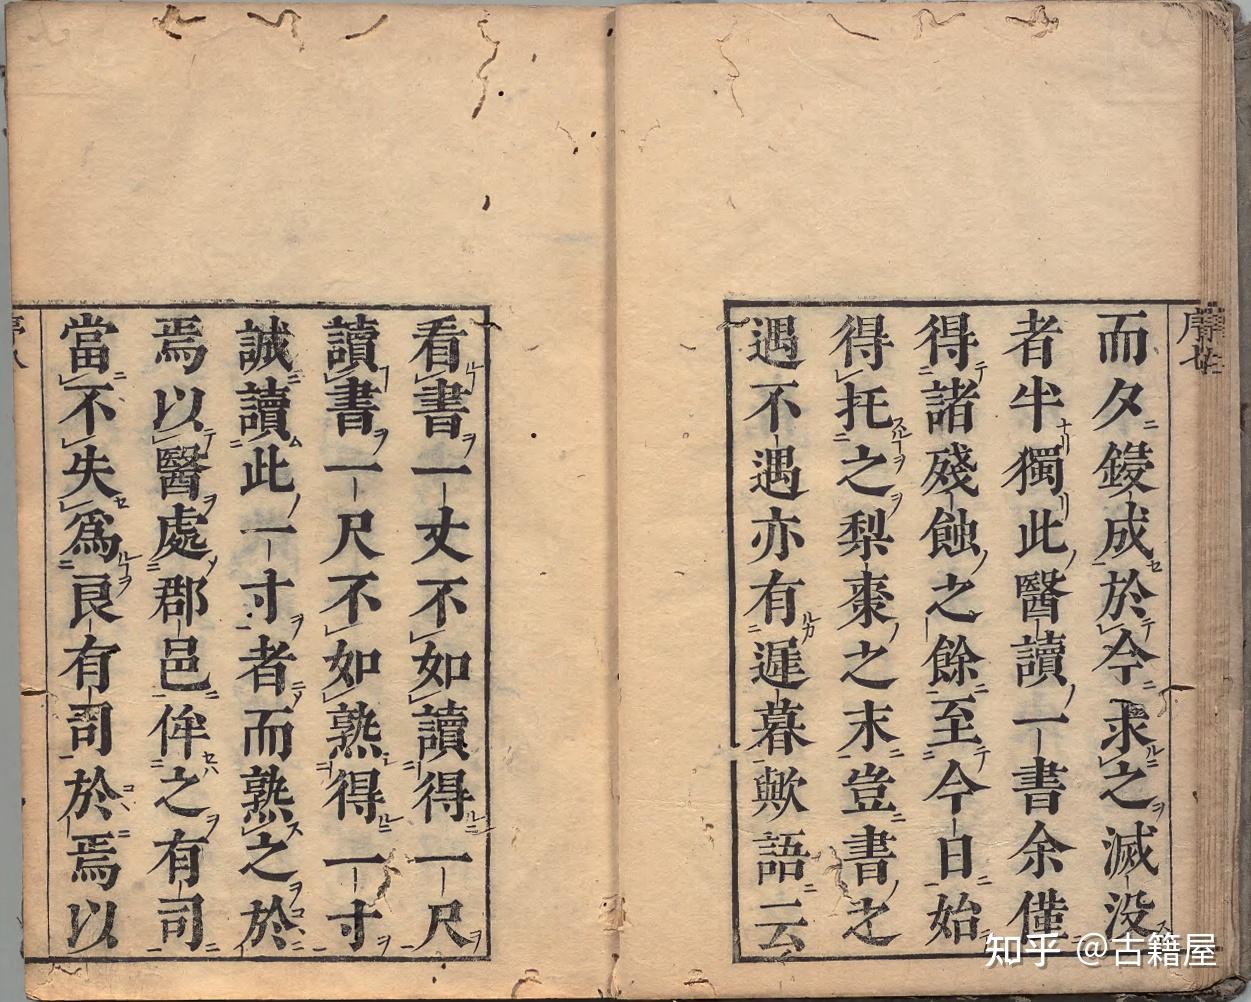 而夕鋟成於今求之滅没
者半獨此醫讀一書余僅
得諸殘蝕之餘至今日始
得托之梨棗之末豈書之
遇不遇亦有遲暮歟語云
看書一丈不如讀得一尺
讀書一尺不如熟得一寸
誠讀此一寸者而熟之於
焉以醫處郡邑侔之有司
當不失爲良有司於焉以
序七
序八
知乎 @古籍屋